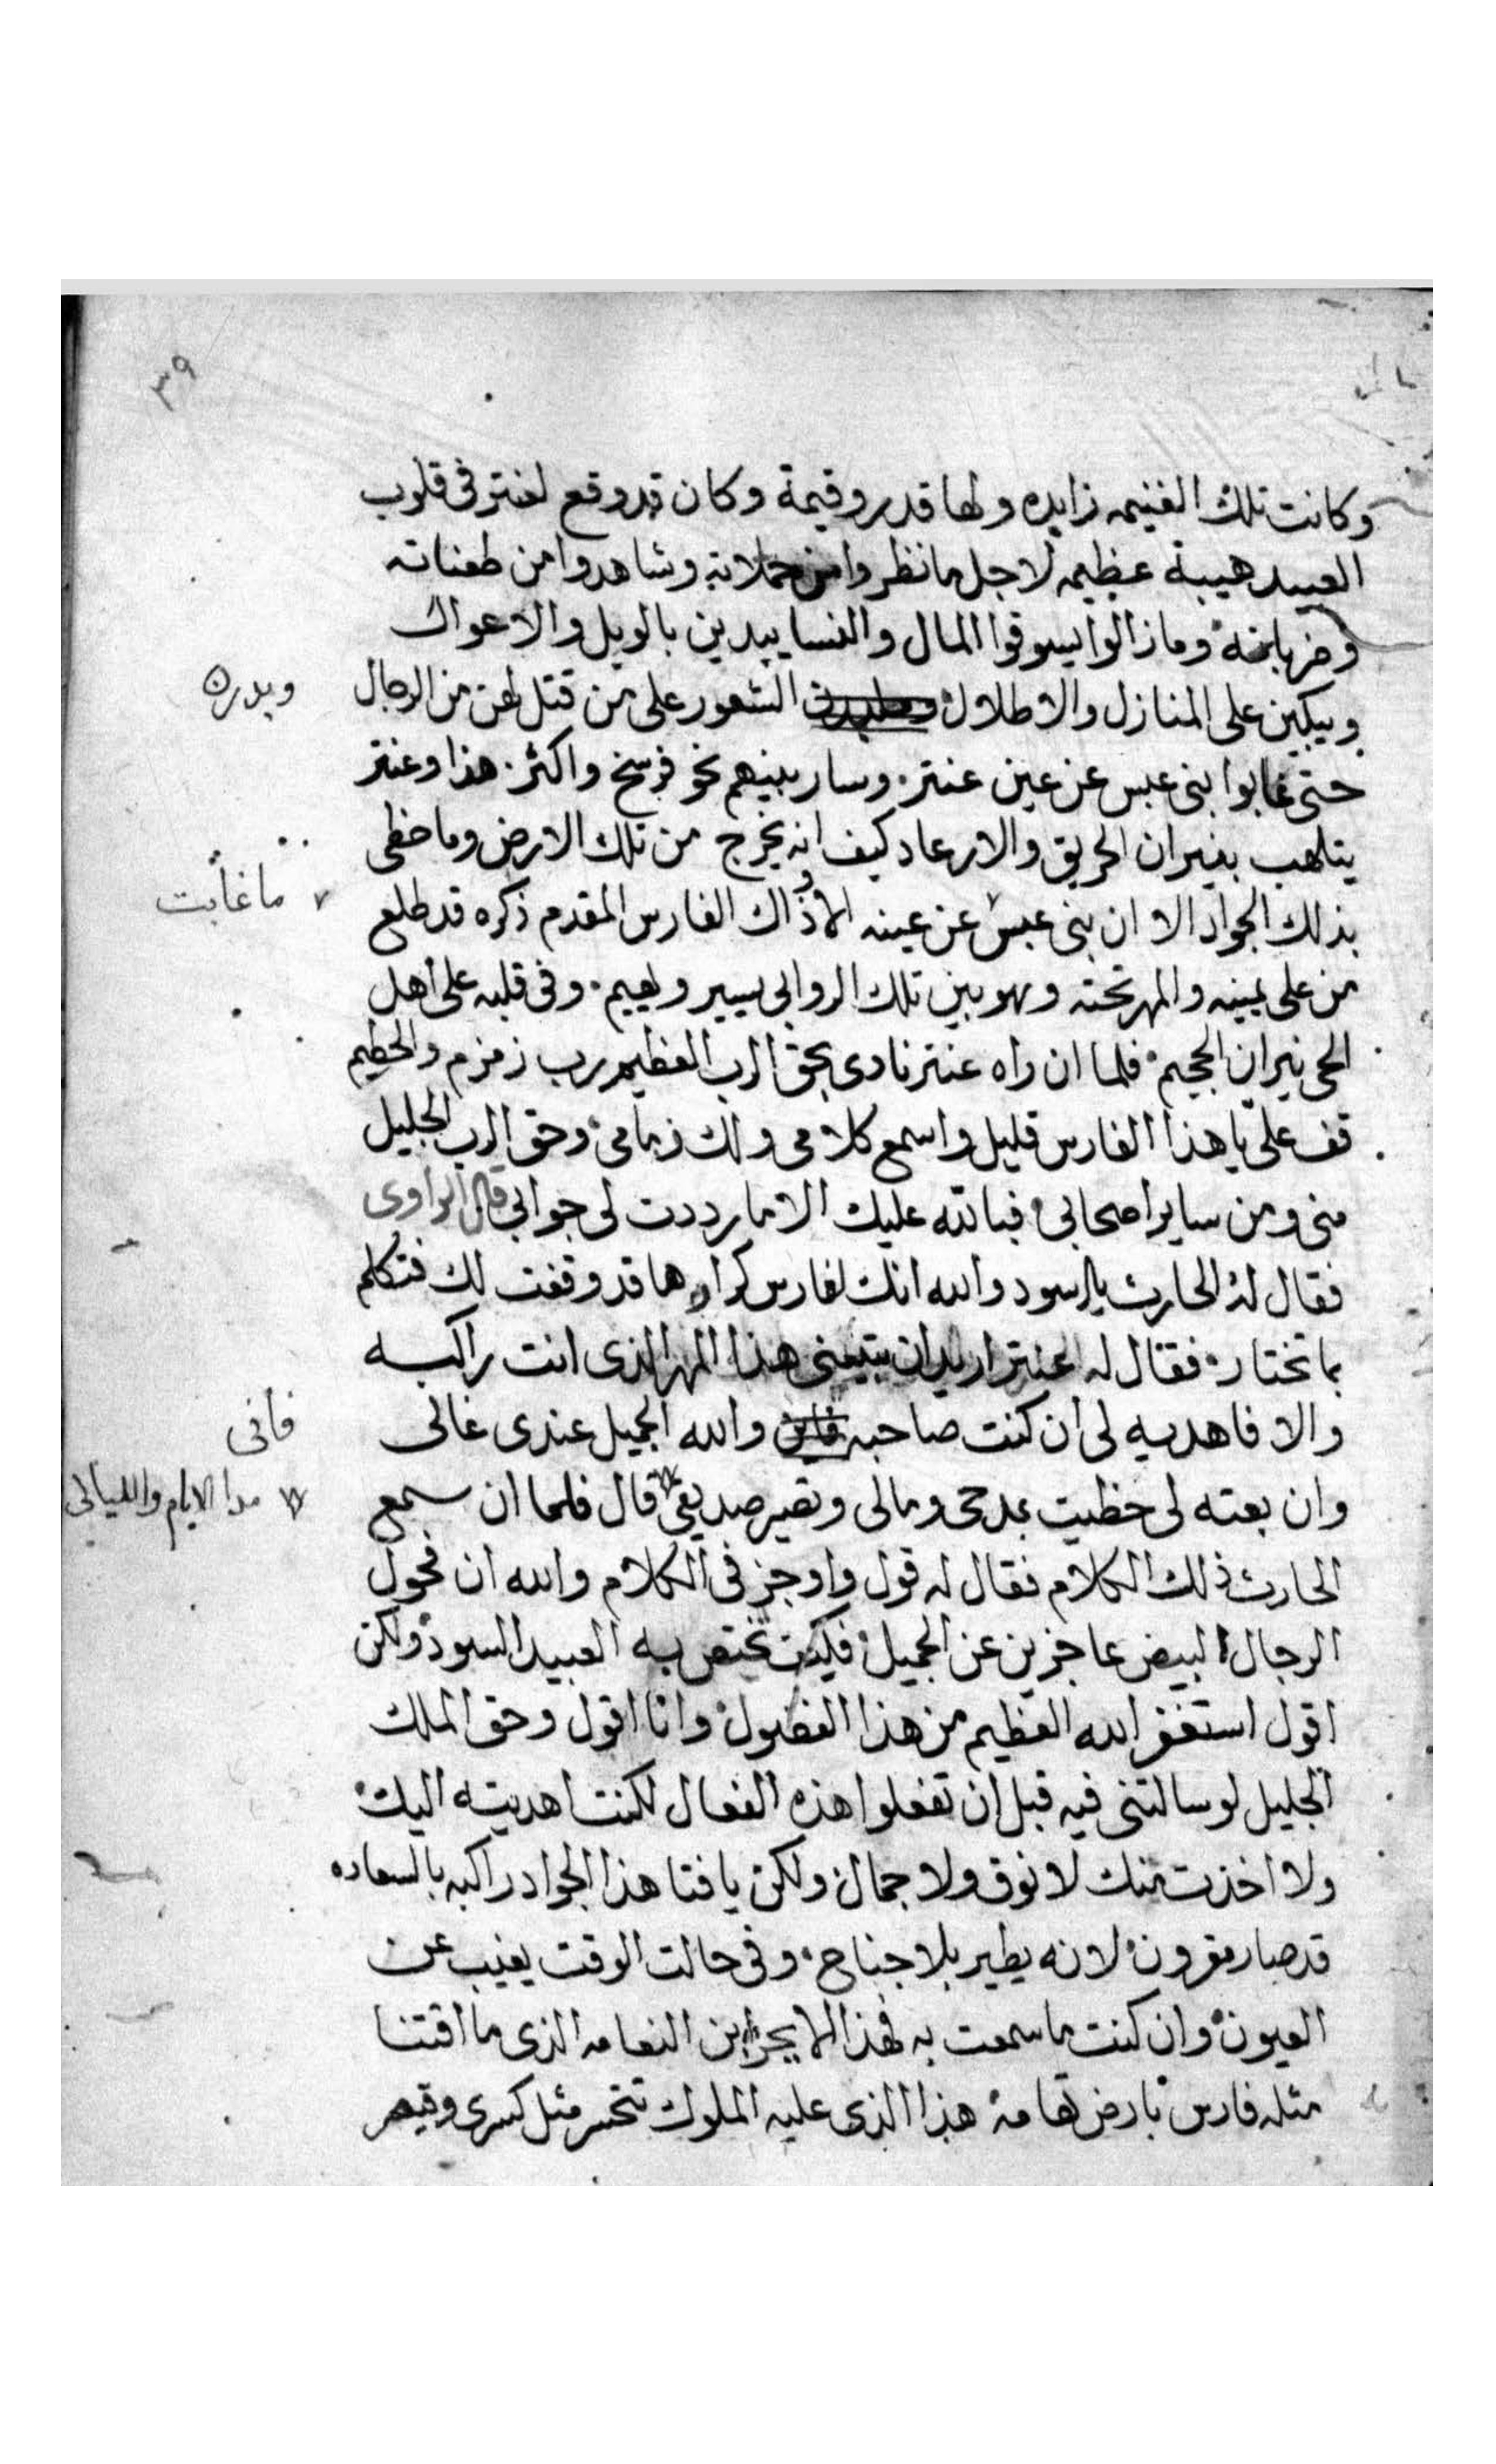 ٣٩
وكانت تلك الغنيمه زايده ولها قدر وقيمة وكان قد وقع لعنتر فى قلوب
العبيد هيبة عظيمه لاجل ما نظروا من حملاته وشاهدوا من طعناته
وضرباته وما زالوا يسوقوا المال والنسا يبدين بالويل والاعوال
ويبكين على المنازل والاطلال الشعور على من قتل لهن من الرجال
ويدرن
حتى غابوا بنى عبس عن عين عنتر وسار بينهم نحو فرسخ واكثر هذا وعنتر
يتلهب بنيران الحريق والارعاد كيف انه يخرج من تلك الارض وما حظى
بذلك الجواد الا ان بنى عبس عن عينه الا وذاك الفارس المقدم ذكره قد طلع
ما غابت
من على يمينه والمهر تحته وهو بين تلك الروابى يسير ويهيم وفى قلبه على اهل
الحى نيران الجحيم فلما ان راه عنتر نادى بحق الرب العظيم رب زمزم والحطيم
قف على يا هذا الفارس قليل واسمع كلامى ولك زمامى وحق الرب الجليل
منى ومن ساير اصحابى فبالله عليك الا ما رددت لى جوابى قال الراوى
فقال له الحارث يا اسود والله انك لفارس كرار وها قد وقفت لك فتكلم
بما تختار فقال له عنتر اريد ان تبيعنى هذا المهر الذى انت راكبه
والا فاهديه لى ان كنت صاحبه والله الجميل عندى غالى
فانى
وان بعته لى حظيت بمدحى ومالى وتصير صديقى قال فلما ان سمع
مدا الايام والليالى
الحارث ذلك الكلام فقال له قول واوجز فى الكلام والله ان فحول
الرجال البيض عاجزين عن الجميل فكيف تختص به العبيد السود ولكن
اقول استغفر الله العظيم من هذا الفضول وانا اقول وحق الملك
الجليل لو سالتنى فيه قبل ان تفعلوا هذه الفعال لكنت اهديته اليك
ولا اخذت منك لا نوق ولا جمال ولكن يا فتا هذا الجواد راكبه بالسعاده
قد صار مقرون لانه يطير بلا جناح وفى حالت الوقت يغيب عن
العيون وان كنت ما سمعت به فهذا الابجر ابن النعامه الذى ما اقتنا
مثله فارس بارض تهامة هذا الذى عليه الملوك تتحسر مثل كسرى وقيصر